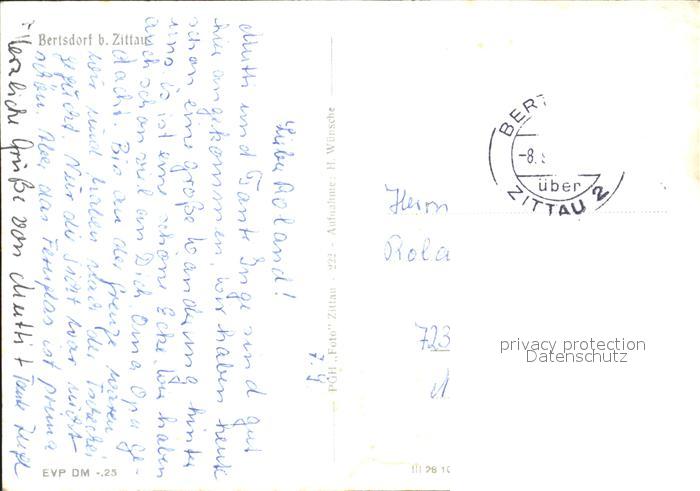 Bertsdorf b. Zittau
7.9
Lieber Roland!
Mutti und Tante Inge sind gut
hier angekommen. Wir haben heute
schon eine große Wanderung hinter
uns. Es ist eine schöne Ecke. Wir haben
auch schon viel an Dich, Oma, Opa ge-
dacht. Bis an der Grenze waren
wir und haben nach der Tschechei
geguckt. Nur die Sicht war nicht
schön. Aber das Fernglas ist prima
Herzliche Grüße von Mutti + Tante Inge
PGH „Foto" Zittau - 222 - Aufnahme: H. Wünsche
BERT
-8.
über
ZITTAU 2
Herrn
Rola
723
privacy protection
Datenschutz
EVP DM -.25
III 28 10